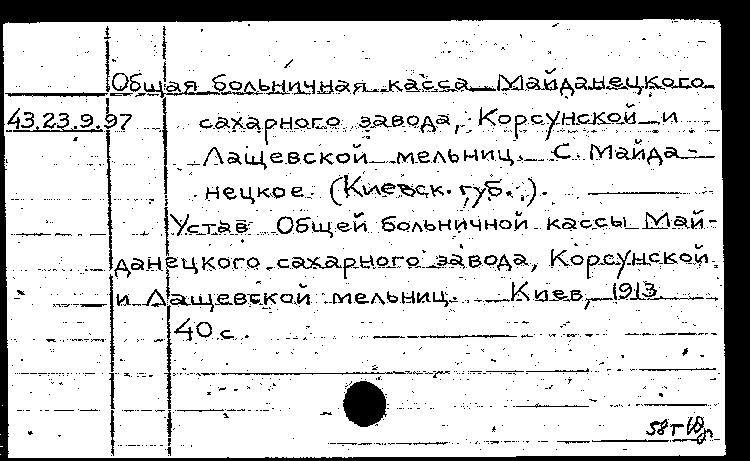 Общая больничная касса Майданецкого
43.23.9.97 сахарного завода, Корсунской и
Лащевской мельниц. С. Майда-
нецкое (Киевск. губ.).
Устав Общей больничной кассы Май-
данецкого сахарного завода, Корсунской
и Лащевской мельниц. Киев, 1913
40 с.